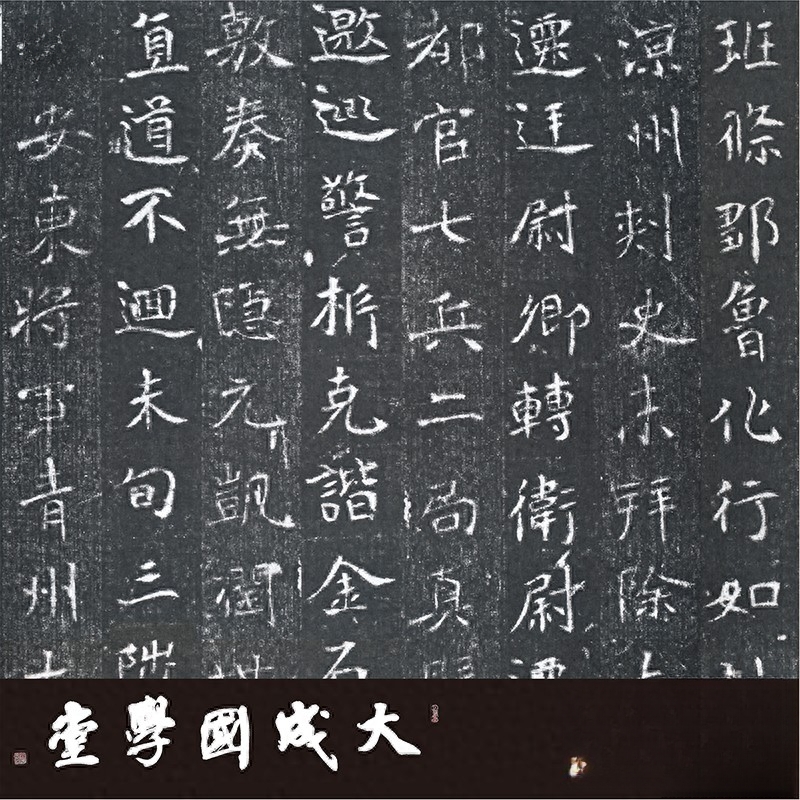 班條郡魯化行如
涼州刺史未拜除
遷迋尉卿轉衛尉
都官七兵二局真
邀巡警析克諧金石
敷奏無隐元凱
直道不迴未旬三階
安東將軍青州
大成國學堂